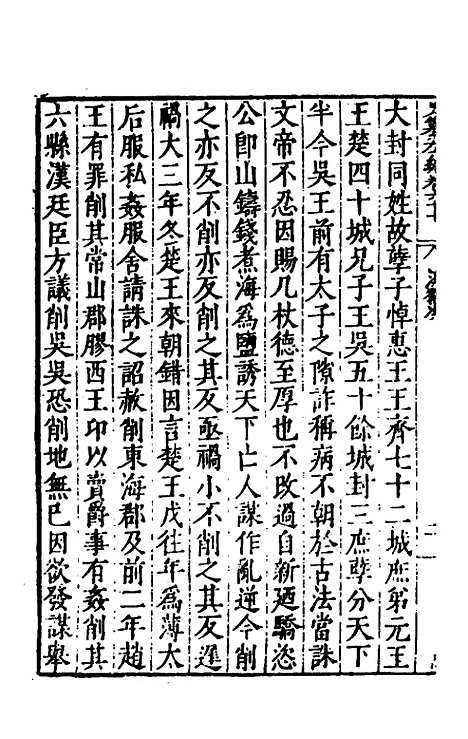 大封同姓故孽子悼惠王王齊七十二城庶弟元王
王楚四十城兄子王吳五十餘城封三庶孽分天下
半今吳王前有太子之隙詐稱病不朝於古法當誅
文帝不忍因賜几杖德至厚也不改過自新廼驕恣
公卽山鑄錢煮海為鹽誘天下亡人謀作亂逆今削
之亦反不削亦反削之其反亟禍小不削之其反遲
禍大三年冬楚王來朝錯因言楚王戊往年為薄太
后服私姦服舍請誅之詔赦削東海郡及前二年趙
王有罪削其常山郡膠西王卬以賣爵事有姦削其
六縣漢廷臣方議削吳吳恐削地無已因欲發謀舉